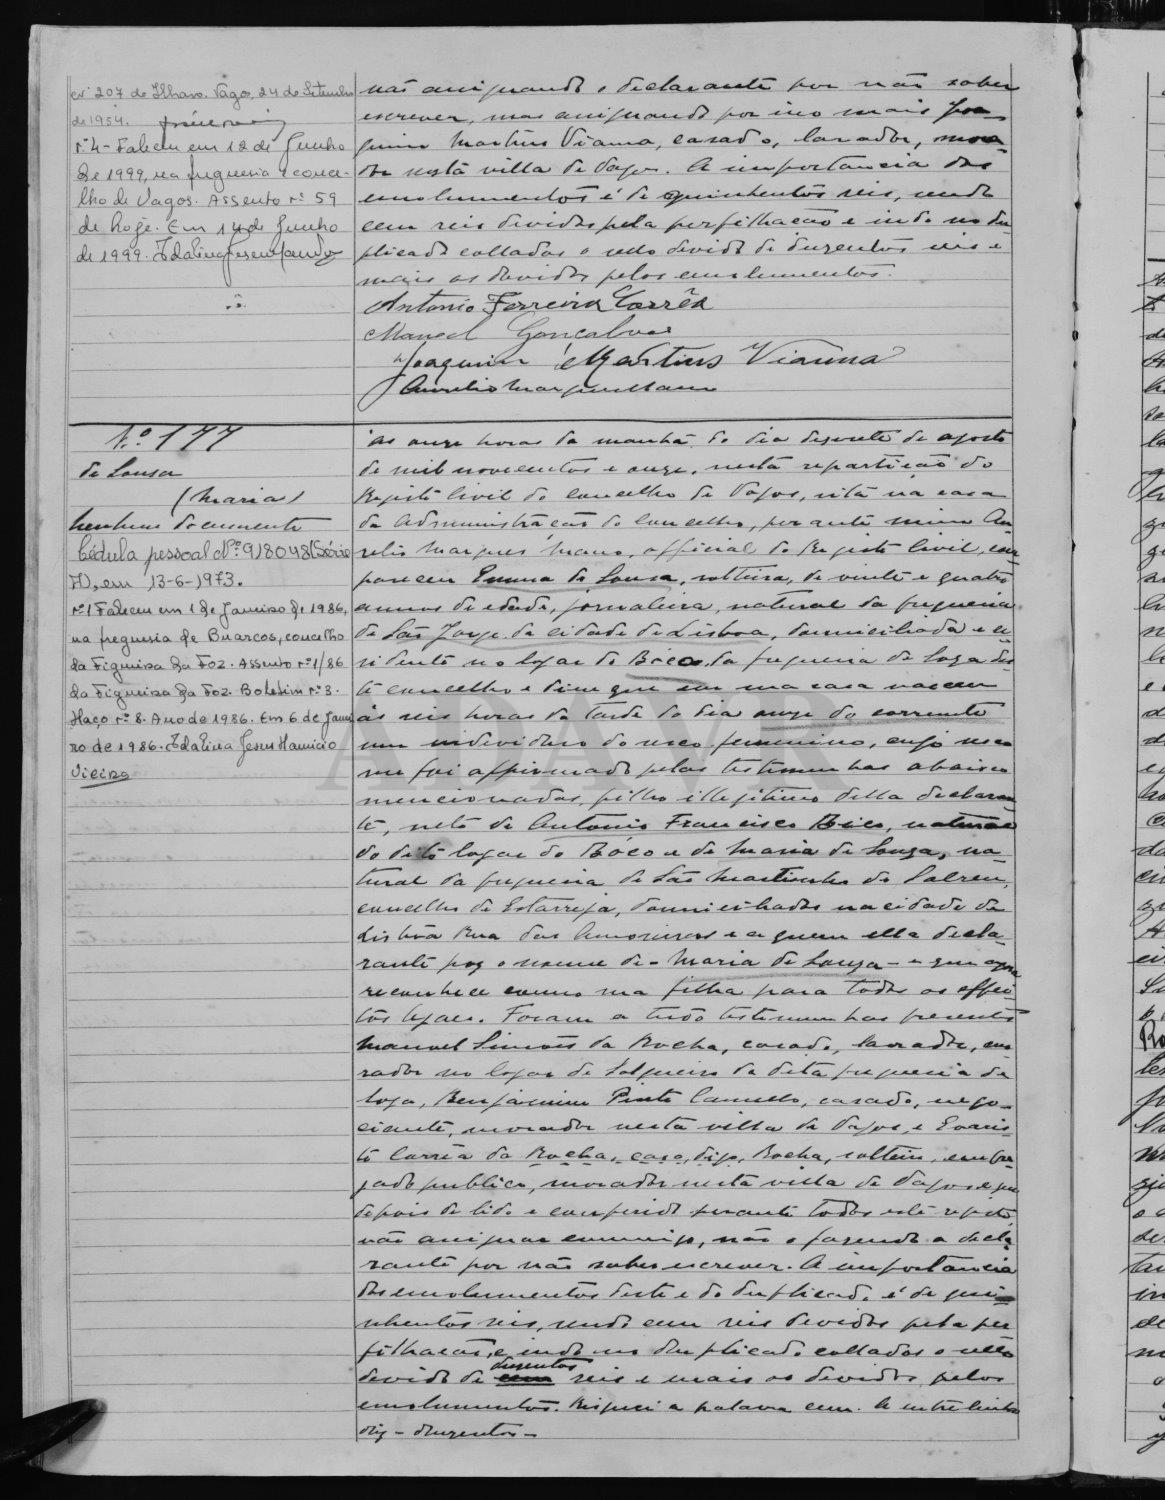 nº 207 de Ilhavo. Vagos, 24 de Setembro
de 1954.
nº 4 - Faleceu em 12 de Junho
de 1999, na freguesia e conce-
lho de Vagos. Assento nº 59
de hoje. Em 14 de Junho
de 1999.
não assignando o declarante por não saber
escrever, mas assignando por isso mais Joa
quim Martins Vianna, casado, lavrador, mora-
dor nesta villa de Vagos. A importancia dos
emolumentos é de quinhentos reis, sendo
cem reis devidos pela perfilhação e indo no du
plicado collados o sello devido de duzentos reis e
mais os devidos pelos emolumentos.
Antonio Ferreira Corrêa
Manoel Gonçalves
Joaquim Martins Vianna
Aurelio Marques Mano
N.º 177
de Sousa
(Maria)
Nenhum documento
Cédula pessoal Nº 918048 (Série
H), em 13-6-1973.
nº 1 Faleceu em 1 de Janeiro de 1986,
na freguesia de Buarcos, concelho
da Figueira da Foz. Assento nº 1/86
da Figueira da Foz. Boletim nº 3.
Maço nº 8. Ano de 1986. Em 6 de Janei
ro de 1986. Idalina Jesus Mauricio
Vieira
Ás onze horas da manhã do dia dezesete de agosto
de mil novecentos e onze, nesta repartição do
Registo Civil do concelho de Vagos, sita na casa
da Administração do Concelho, perante mim Au
relio Marques Mano, official do Registo Civil, com
pareceu Emma de Sousa, solteira, de vinte e quatro
annos de edade, jornaleira, natural da freguesia
de São Jorge da cidade de Lisboa, domiciliada e re
sidente no logar do Bóco, da freguesia de Soza des
te concelho e disse que em sua casa nasceu
ás seis horas da tarde do dia onze do corrente
um individuo do sexo femenino, cujo sexo
me foi affirmado pelas testemunhas abaixo
mencionadas, filho illegitimo della declaran
te, neto de Antonio Francisco Bico, natural
do dito logar do Bóco e de Maria de Souza, na
tural da freguesia de São Martinho de Salreu,
concelho de Estarreja, domiciliados na cidade de
Lisbôa Rua das Amoreiras e a quem ella decla
rante poz o nome de - Maria de Souza - e que agora
reconhece como sua filha para todos os effei
tos legaes. Foram a tudo testemunhas presentes
Manoel Simões da Rocha, casado, lavrador, mo
rador no logar de Salgueiro da dita freguesia de
Soza, Benjamim Pinto Camello, casado, nego-
ciante, morador nesta villa de Vagos, e Evaris
to Corrêa da Rocha, casa, digo, Rocha, solteiro, empre
gado publico, morador nesta villa de Vagos e que
depois de lido e conferido perante todos este registo
vão assignar commigo, não o fazendo a decla
rante por não saber escrever. A importancia
dos emolumentos deste e do duplicado é de qui
nhentos reis, sendo cem reis devidos pela per
filhação, e indo no duplicado collados o sello
duzentos
devido de cem reis e mais os devidos pelos
emolumentos. Risquei a palavra cem. A entrelinha
diz - duzentos -
ADAVR